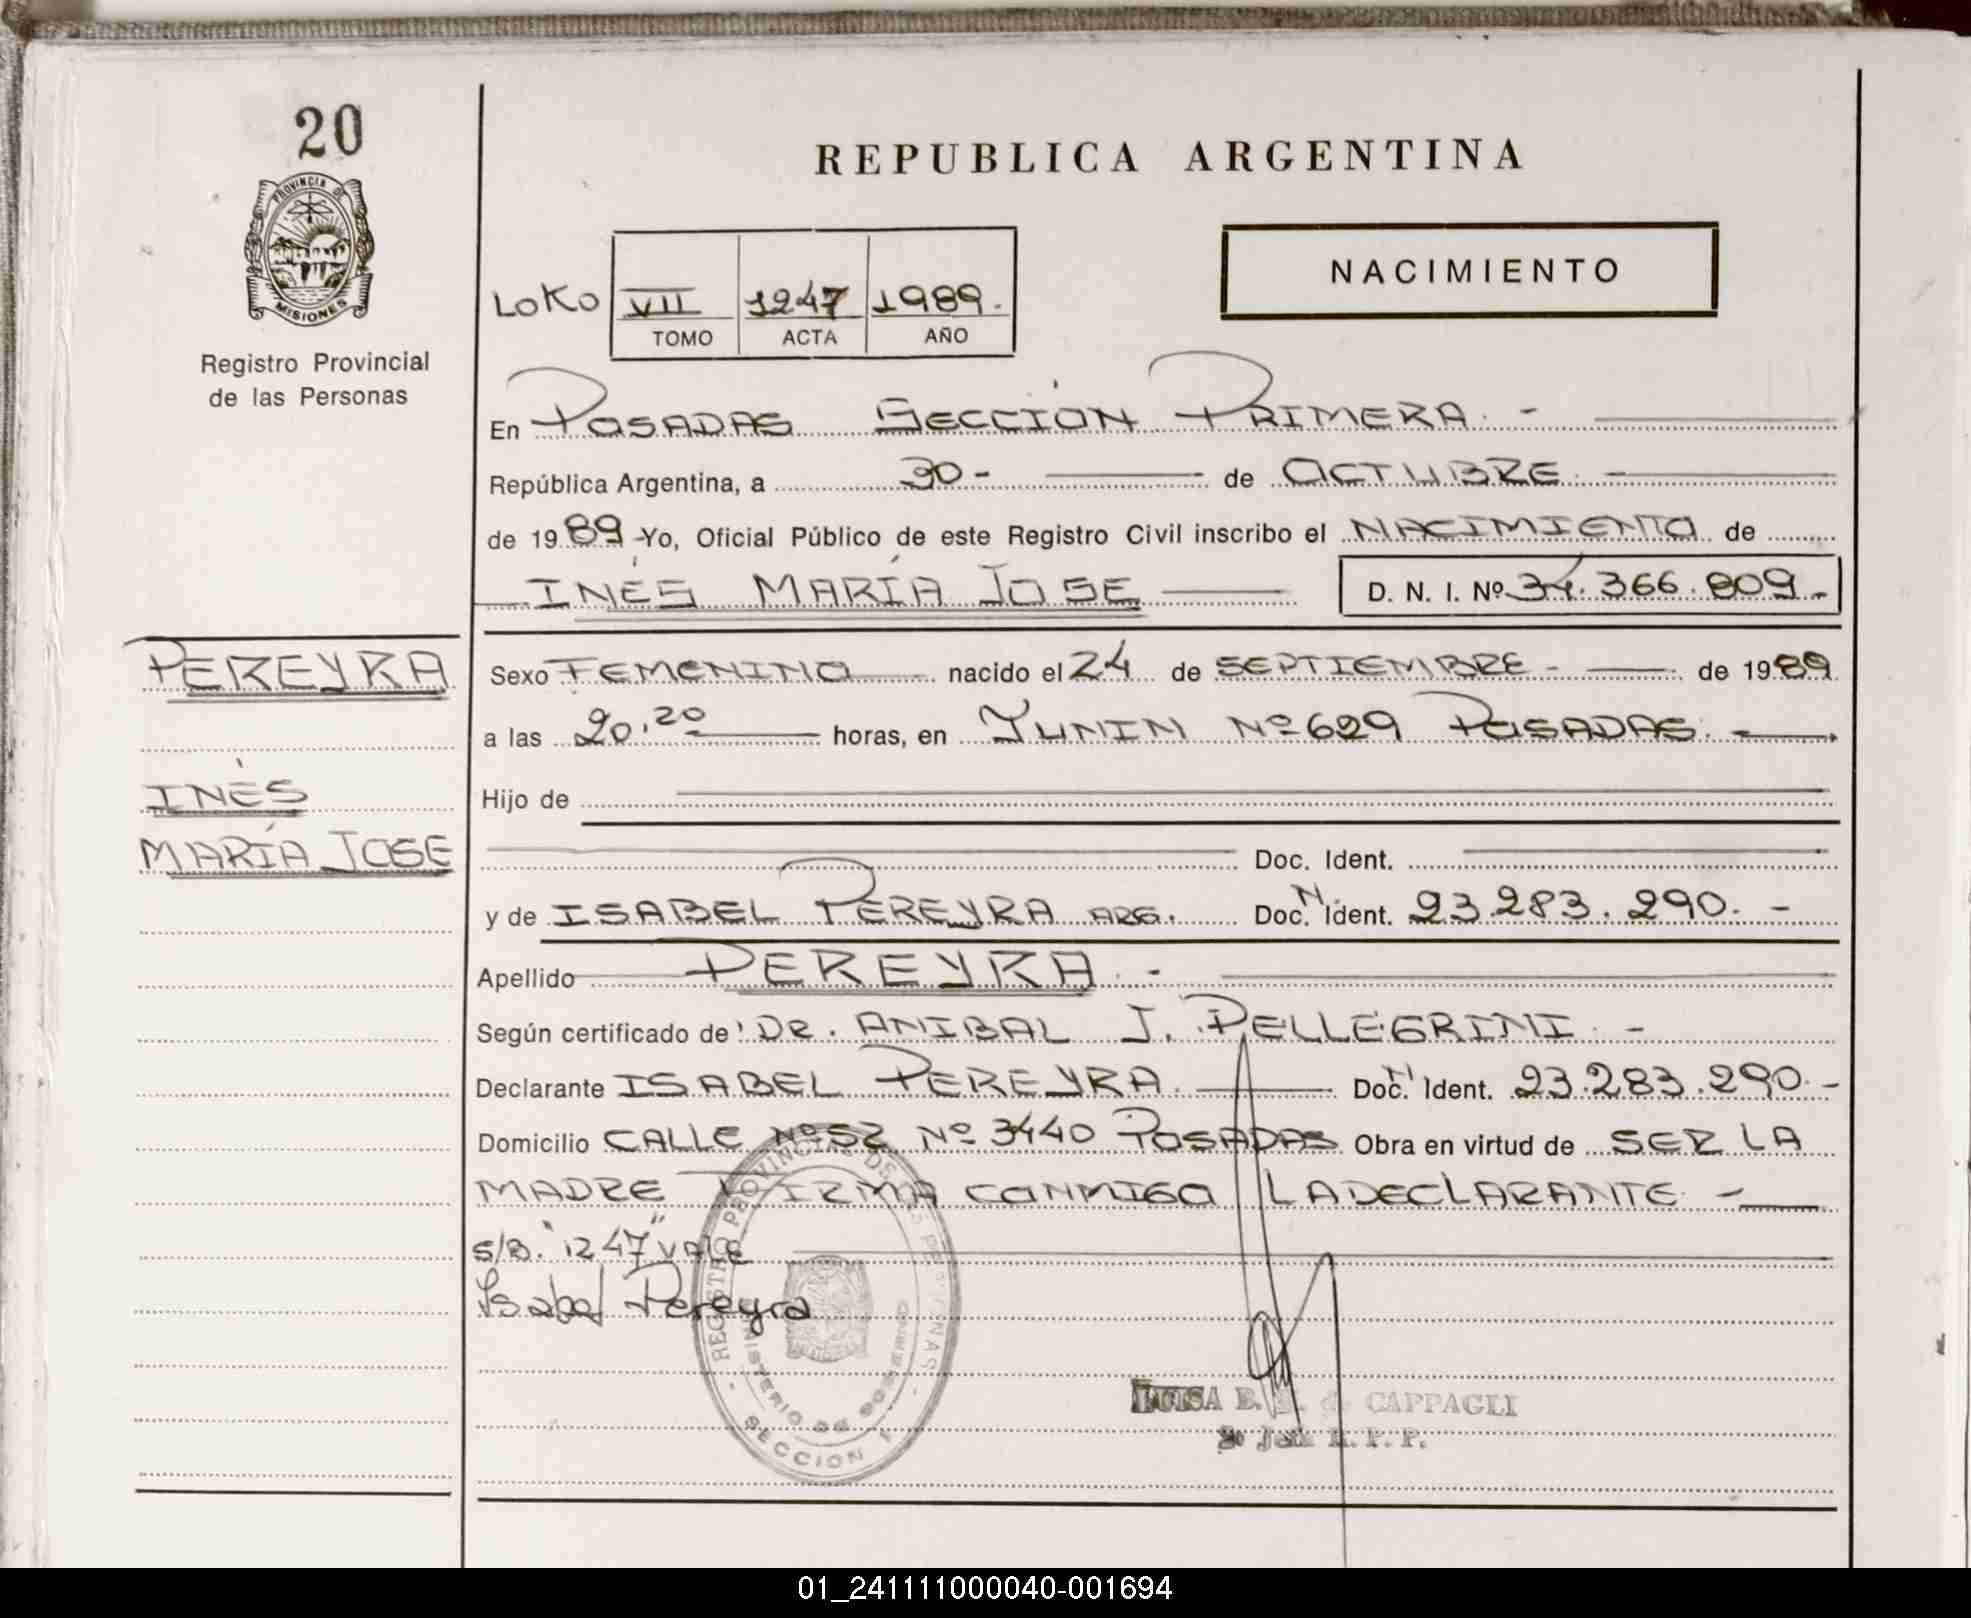 20
PROVINCIA DE
MISIONES
Registro Provincial
de las Personas
REPUBLICA ARGENTINA
NACIMIENTO
LOKO VII 1247 1989.
TOMO ACTA AÑO
En POSADAS SECCIÓN PRIMERA. -
República Argentina, a 30- de OCTUBRE.
de 1989 Yo, Oficial Público de este Registro Civil inscribo el NACIMIENTO de
INÉS MARÍA JOSE D. N. I. Nº 34.366.809.-
PEREYRA
INÉS
MARÍA JOSE
Sexo FEMENINO nacido el 24 de SEPTIEMBRE - de 1989
a las 20.20 horas, en JUNIN Nº 629 POSADAS.
Hijo de
Doc. Ident.
y de ISABEL PEREYRA ARG. Doc. N. Ident. 23.283.290. -
Apellido PEREYRA. -
Según certificado de DR. ANIBAL J. PELLEGRINI. -
Declarante ISABEL PEREYRA. Doc. N Ident. 23.283.290.-
Domicilio CALLE Nº 52 Nº 3440 POSADAS Obra en virtud de SER LA
MADRE FIRMA CONMIGO LA DECLARANTE. -
S/B. "1247" VALE
Isabel Pereyra
REGISTRO PROVINCIAL DE LAS PERSONAS
MINISTERIO DE GOBIERNO
SECCION 1
LUISA B. de CAPPAGLI
R. P. P.
01_241111000040-001694